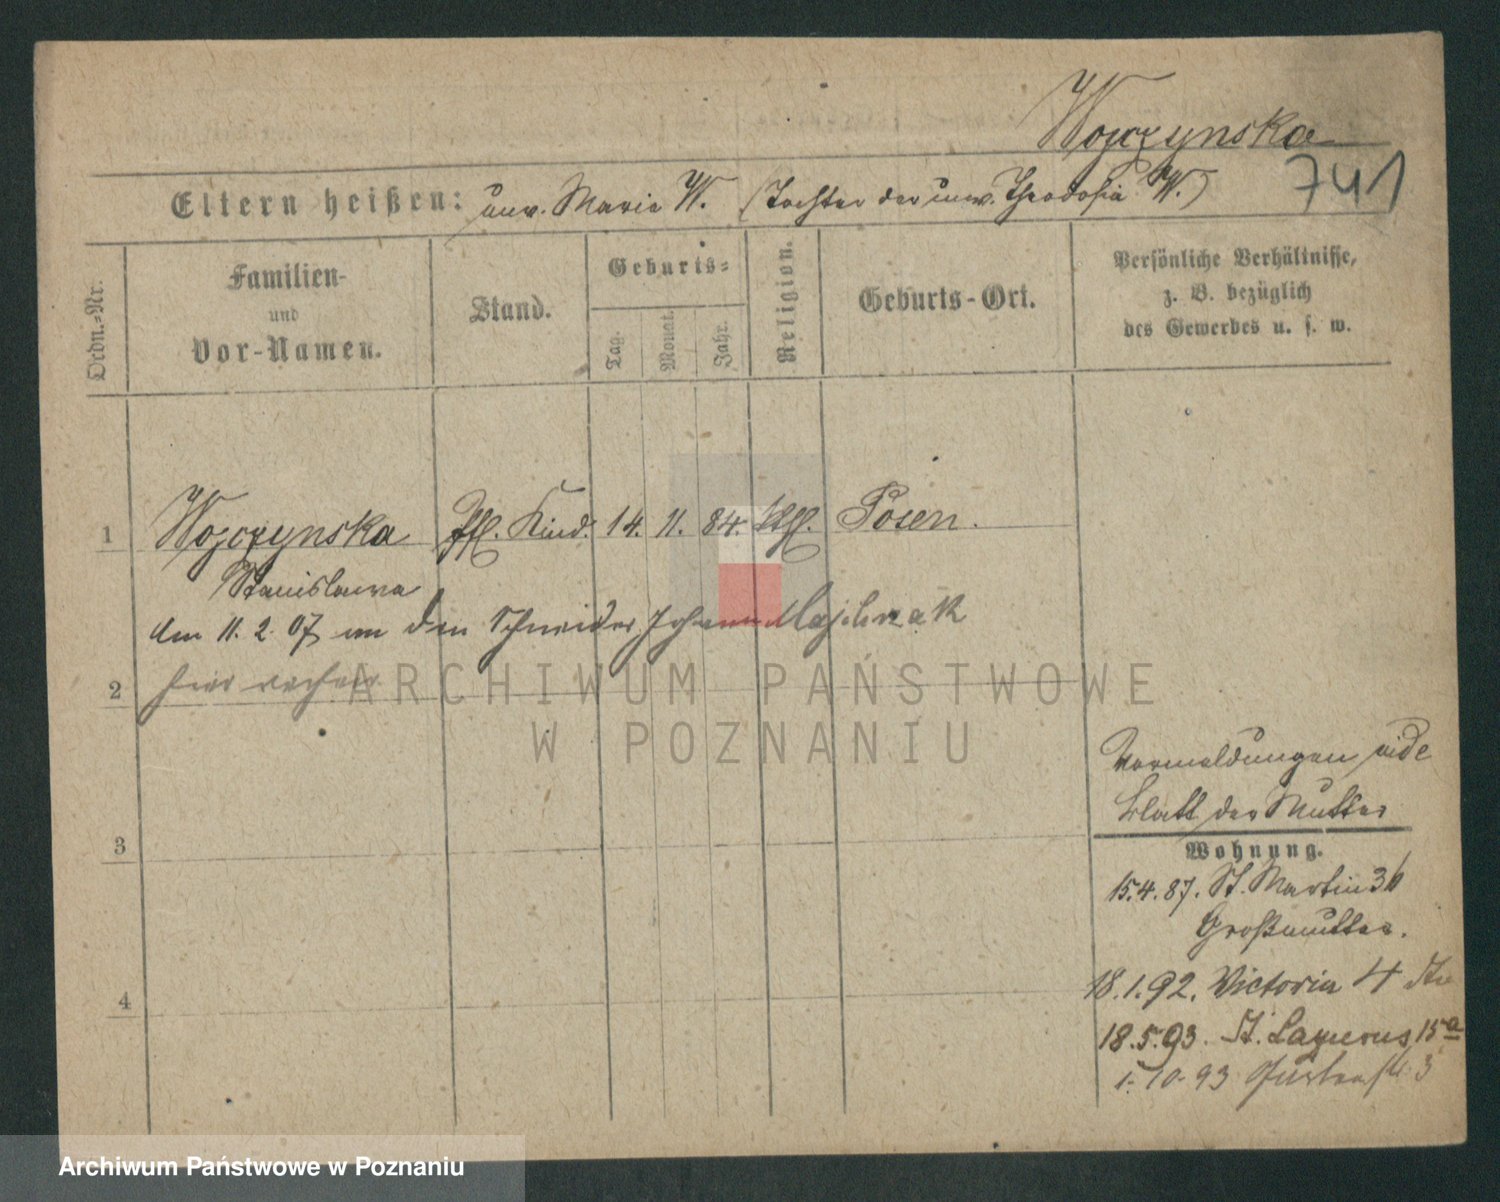 Wojczynska
741
Eltern heißen: unv. Marie W. (Tochter der unv. Theodosia W.)
Ordn.-Nr.
Familien-
und
Vor-Namen.
Stand.
Geburts-
Tag.
Monat.
Jahr.
Religion.
Geburts-Ort.
Persönliche Verhältnisse,
z. B. bezüglich
des Gewerbes u. s. w.
1 Wojczynska Pfl. Kind. 14. 11. 84. kth. Posen.
Stanislawa
Am 11. 2. 07 an den Schneider Johann Majchrzak
hier
2
ARCHIWUM PAŃSTWOWE
W POZNANIU
Vormeldungen vide
Blatt der Mutter
3
Wohnung.
15.4.87. St. Martin 36
Großmutter.
4
18.1.92. Victoria 4
18.5.93. St. Lazarus 15a
1. 10. 93 3
Archiwum Państwowe w Poznaniu